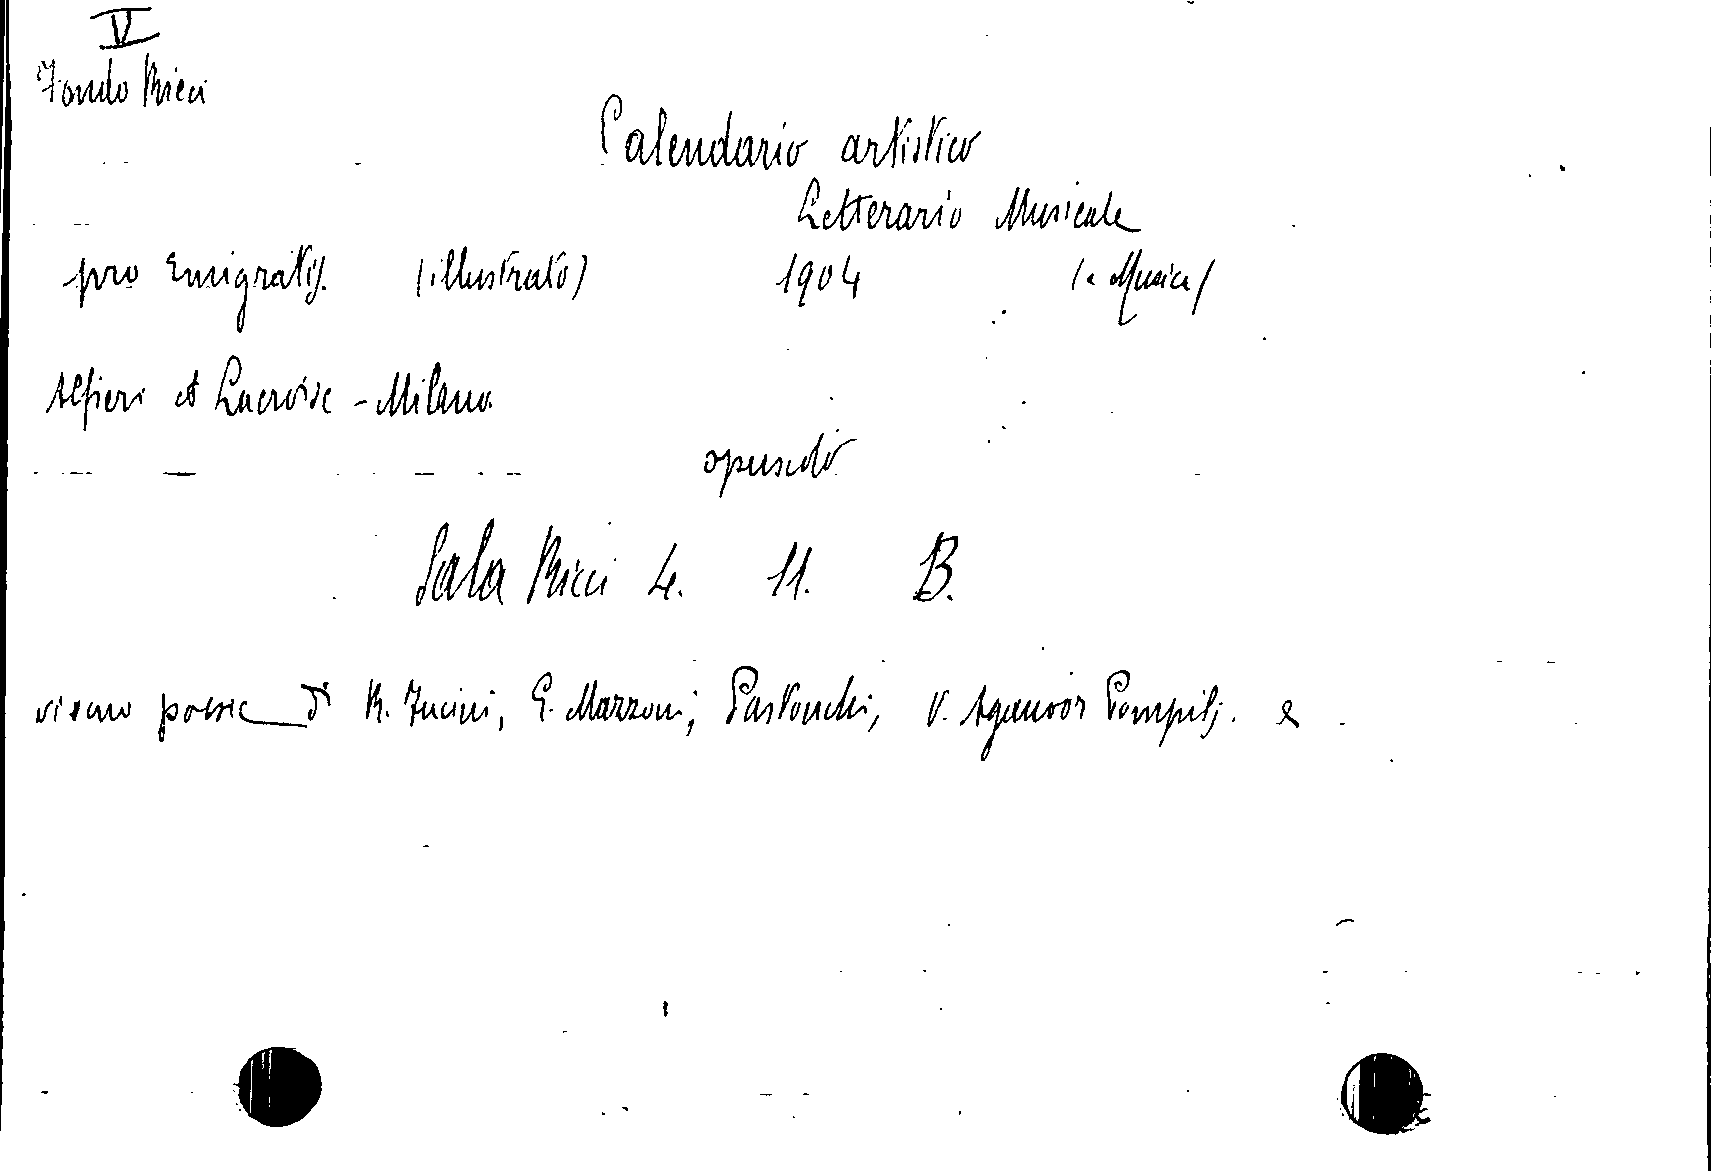 V
Fondo Ricci
Calendario artistico
Letterario Musicale
pro Emigrati. (illustrato) 1904 (e Musica)
Alfieri et Lacroise - Milano
opuscolo
Sala Ricci 4. 11. B.
vi sono poesie di R. Fucini, G. Mazzoni, Pastonchi, V. Aganoor Pompilj. e